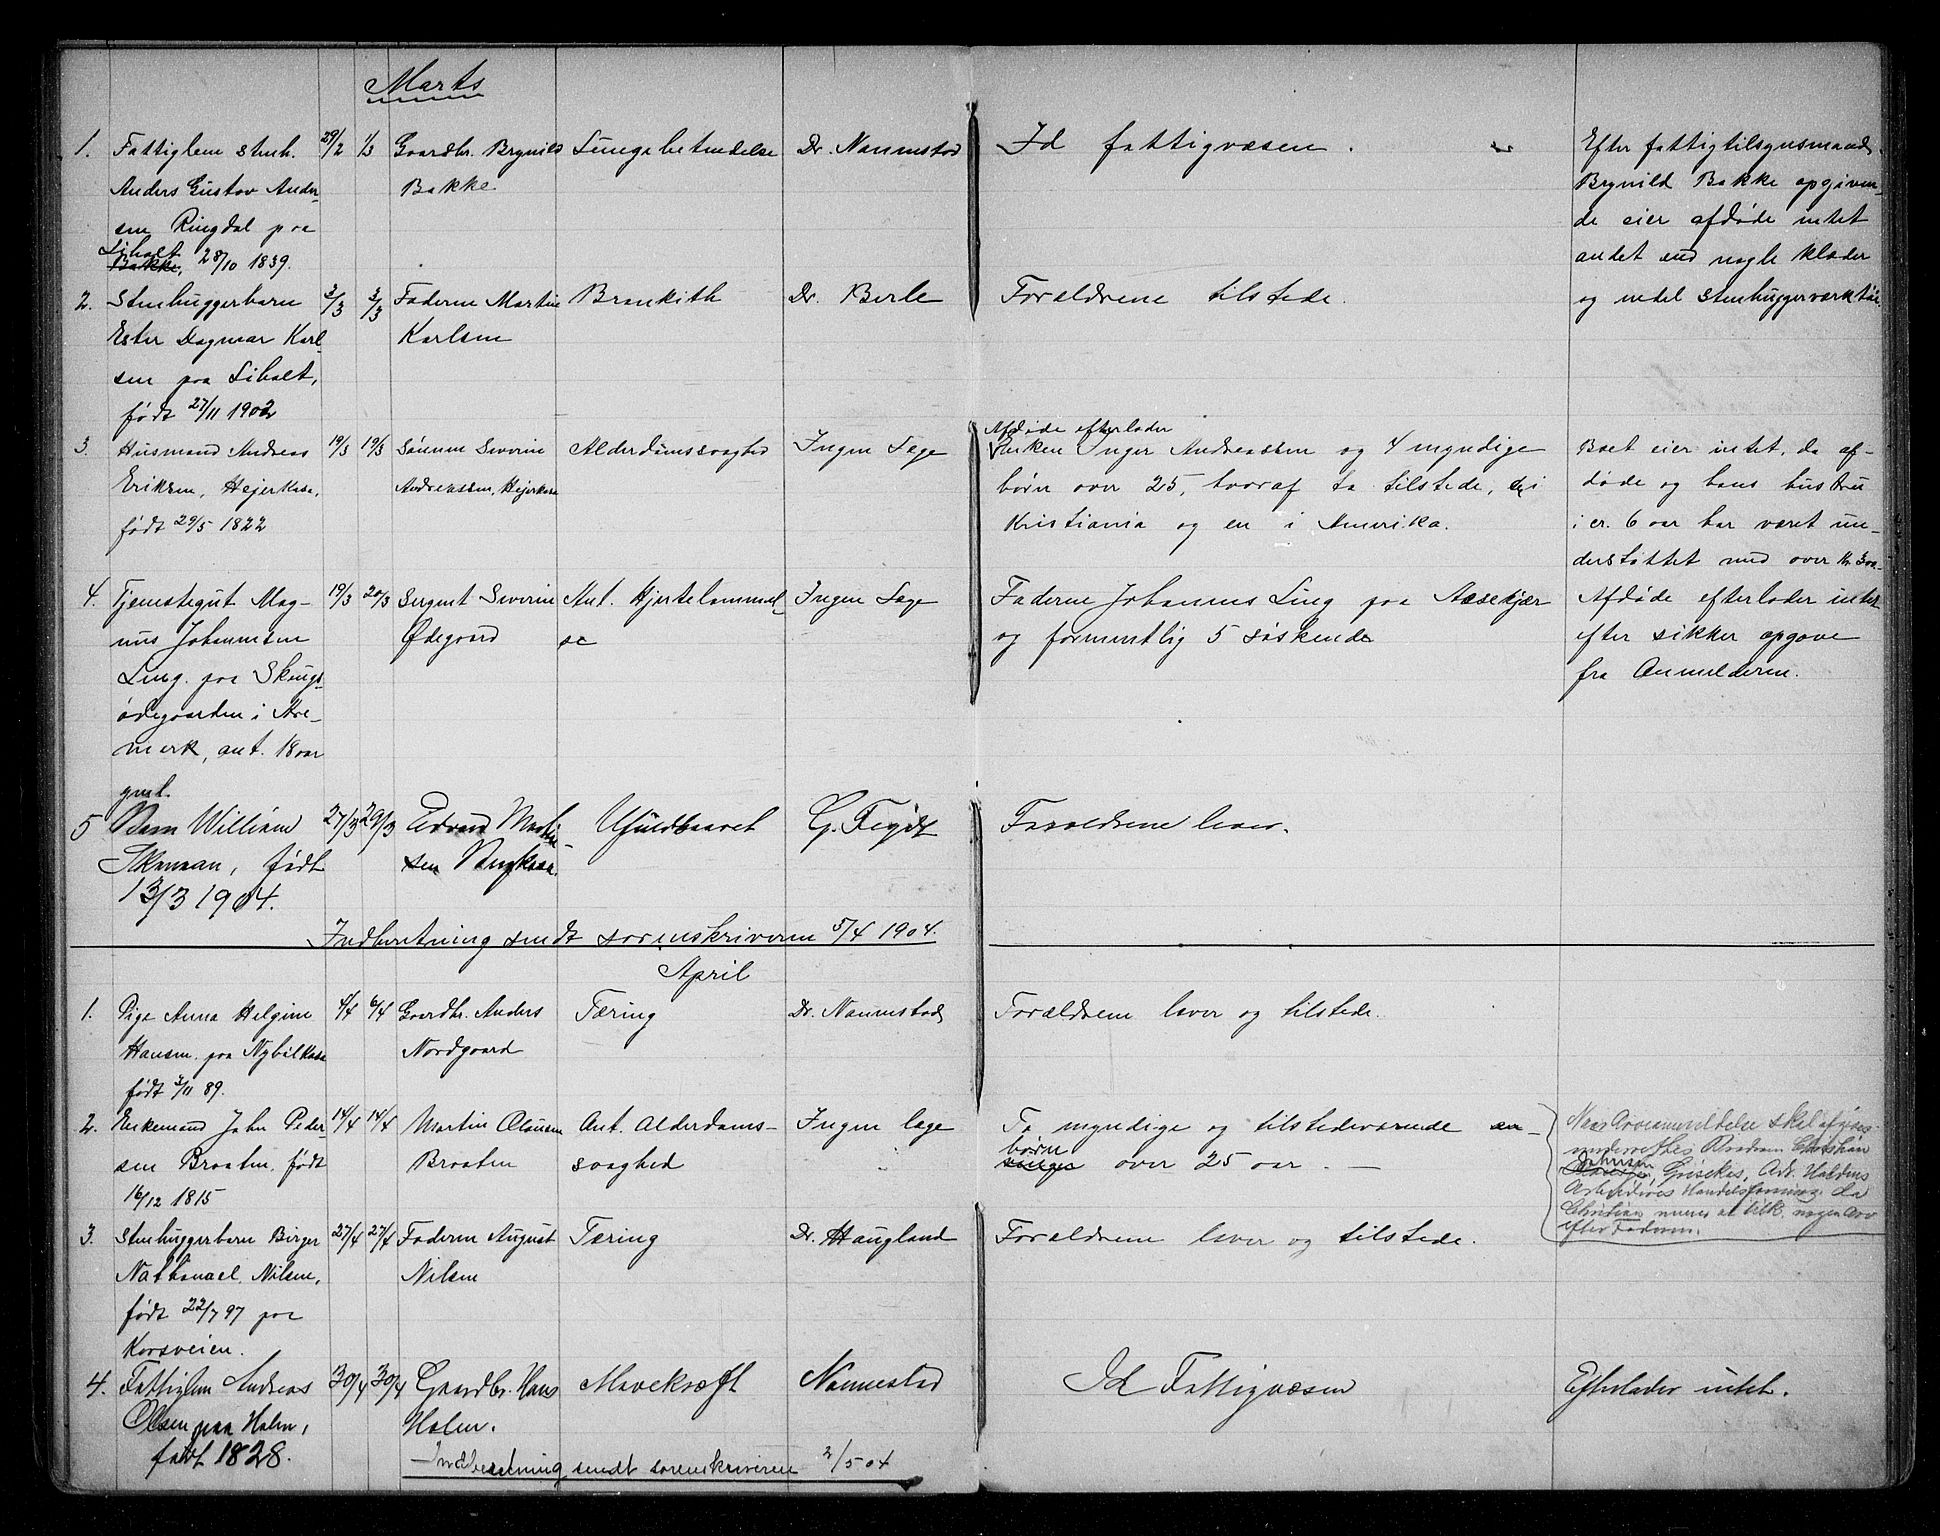 Marts
1. Fattiglem stenh. 29/2 1/3 Gaardbr. Brynild Lungebetendelse Dr. Nannestad Id fattigvæsen. Efter fattigtilsynsmand
Anders Gustav Ander- Bakke Brynild Bakke opgiven-
sen Ringdal paa de eier afdøde intet
Liholt andet end nogle klæder
Bakke, 28/10 1839.
2. Stenhuggerbarn 3/3 3/3 Faderen Martin Bronkith Dr. Berle Forældrene tilstede. og endel stenhuggerværktøi
Ester Dagmar Karl- Karlsen
sen paa Liholt,
født 27/11 1902
Afdøde efterlader
3. Husmand Andreas 19/3 19/3 Sønnen Severin Alderdomssvaghed Ingen Læge Enken Inger Andreassen og 4 myndige Boet eier intet, da af-
Eriksen, Hejerkasa, Andreassen, Hejerkasa børn over 25, hvoraf to tilstede, en i døde og hans hustru
født 29/5 1822 Kristiania og en i Amerika. i cr. 6 aar har været un-
derstøttet med over kr 300
4. Tjenestegut Mag- 19/3 20/3 Sergent Severin Ant. Hjertelammel- Ingen Læge Faderen Johannes Ling paa Aasekjær Afdøde efterlader intet
nus Johannesen Ødegaard se og formentlig 5 søskende efter sikker opgave
Ling. paa Skougs- fra Anmelderen.
ødegaarden i Are-
mark, ant. 18 aar
gml.
5 Barn William 27/3 29/3 Edvard Martin- Ufuldbaaret G. Feydt Forældrene lever.
født sen
13/3 1904.
Indberetning sendt sorenskriveren 5/4 1904.
April
1. Pige Anna Helgine 4/4 6/4 Gaardbr. Anders Tæring Dr. Nannestad Forældrene lever og tilstede.
Hansen. paa Nybølkasa Nordgaard
født 3/11 89.
2. Enkemand John Peder- 14/4 14/4 Martin Olausen Ant. Alderdoms- Ingen læge To myndige og tilstedeværende
sen Braaten, født Braaten svaghed børn over 25 aar. —
16/12 1815
Naar Arveanmeldelse skal afgives
underrettes Christian
Johnsen Grisekas, Adr. Haldens
Arbeideres Handelsforening da
Christian menes at tilk. nogen Arv
efter Faderen.
3. Stenhuggerbarn Birger 27/4 27/4 Faderen August Tæring Dr. Haugland Forældrene lever og tilstede.
Nathanael Nilsen, Nilsen
født 22/7 97 paa
Korsveien.
4. Fattiglem Andreas 30/4 30/4 Gaardbr. Hans Mavekræft Nannestad Id Fattigvæsen Efterlader intet.
Olsen paa Holm, Holm.
født 1828.
Indberetning sendt sorenskriveren 2/5 04